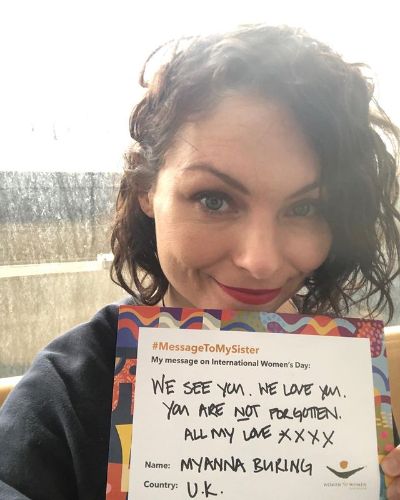 #MessageToMySister
My message on International Women's Day:
WE SEE YOU. WE LOVE YOU.
YOU ARE NOT FORGOTTEN.
ALL MY LOVE XXXX
Name: MYANNA BURING
Country: U.K.
WOMEN TO WOMEN